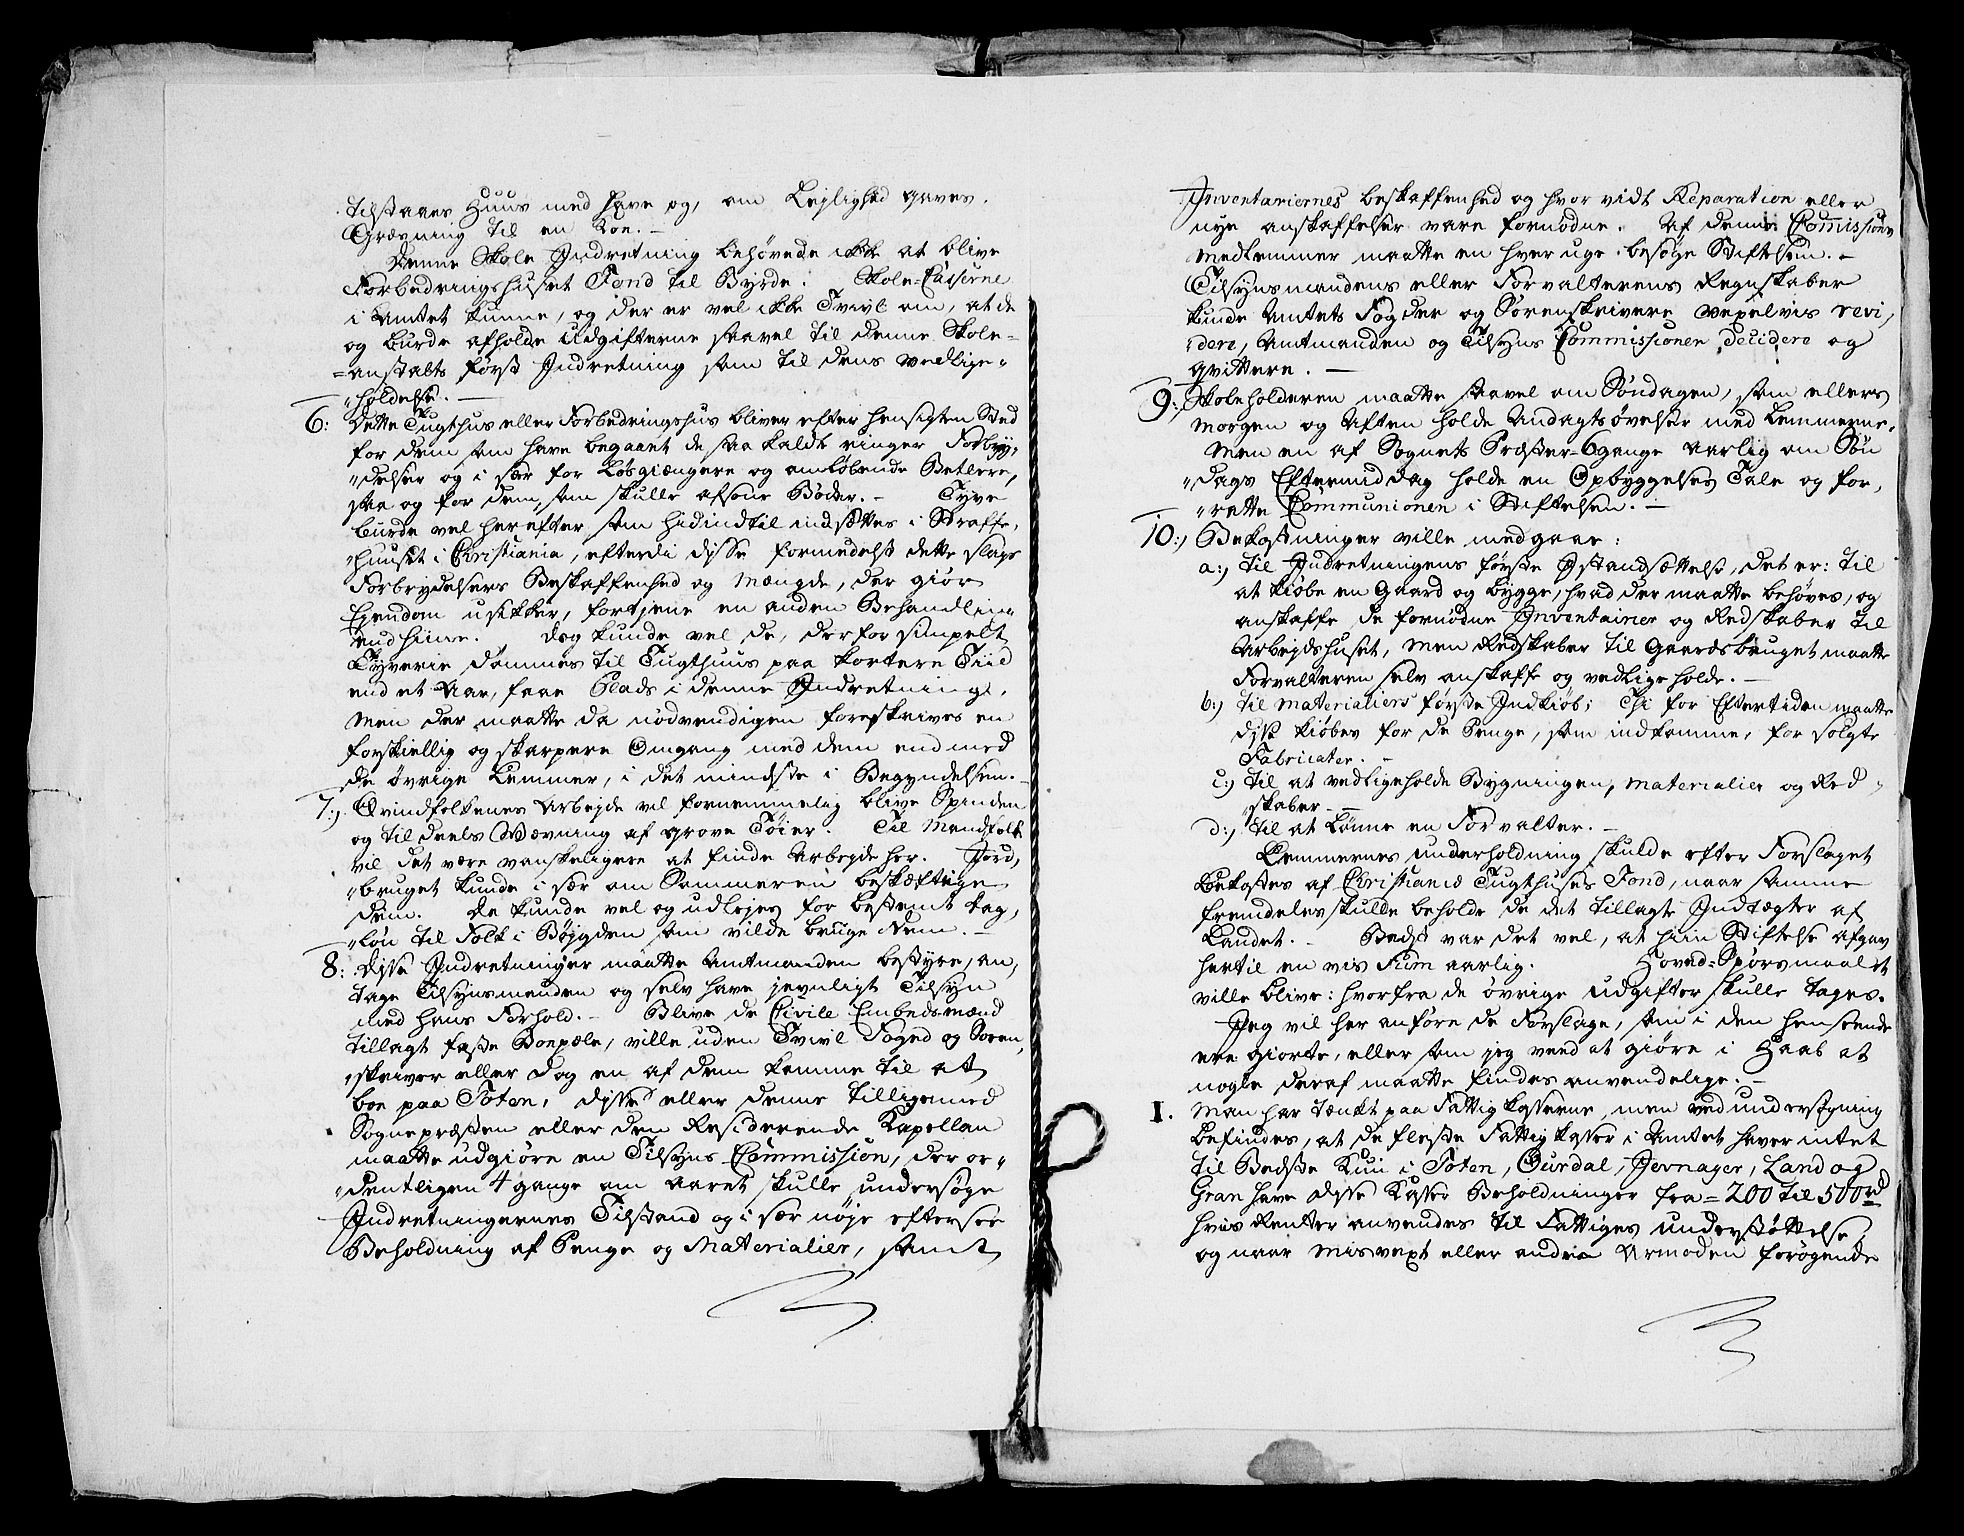 tilstaaes Huus med Have og, om Lejlighed gaves.
Græsning til en Koe. –
Denne Skole Indretning behøvede ikke at blive
Forbedringshuset Fond til Byrde. Skole-Casserne
i Amtet kunne, og der er vel ikke Tvivl om, at de
og burde afholde Udgifterne saavel til denne Skole-
=anstalts først Indretning som til dens vedlige"
"holdelse. –
6: Dette Tugthus eller Forbedringshus bliver efter Hensigten Sted
for dem som have begaaet de saa kaldte ringer Forbry,
"delser og i sær for Løsgiængere og omløbende Betlere,
saa og for dem, som skulle afsone Bøder. – Tyve
burde vel herefter som hidindtil indsættes i Straffe,
"huuset i Christiania, efterdi disse formedelst dette Slags
Forbrydelsers Beskaffenhed og Mængde, der giør
Ejendom usikker, fortjene en anden Behandling
end hiine. Dog kunde vel de, der for simpelt
Tyverie dømmes til Tugthuus paa kortere Tiid
end et Aar, faae Plads i denne Indretning.
Men der maatte da nødvendigen foreskrives en
forskiellig og skarpere Omgang med dem end med
de øvrige Lemmer, i det mindste i Begyndelsen. –
7:, Qvindfolkenes Arbejde vil fornemmelig blive Spinden
og til deels Vævning af grove Tøier. Til Mandfolk
vil det være vanskeligere at finde Arbejde her. Jord,
"bruget kunde i sær om Sommeren beskæftige
dem. De kunde vel og udlejes for bestemt Dag,
"løn til Folk i Bøjgden som vilde bruge dem. –
8: Disse Indretninger maatte Amtmanden bestyre, an,
tage Tilsynsmanden og selv have jevnligt Tilsyn
med hans Forhold. – Blive de Civile Embedsmænd
tillagt faste Boepæle, ville uden Tvivl Foged og Soren,
"skriver eller dog en af dem komme til at
boe paa Toten, disse eller denne tilligemed
Sognepræsten eller den Residerende Kapellan
maatte udgiøre en Tilsyns Commission, der or"
"dentligen 4 gange om Aaret skulle undersøge
Indretningernes Tilstand og i sær nøje eftersee
Beholdning af Penge og Materialier, samt
Inventariernes beskaffenhed og hvor vidt Reparation eller
nye anskaffelser vare fornødne. Af denne Commissions
Medlemmer maatte en hver uge besøge Stiftelsen. –
Tilsynsmandens eller Forvalterens Regnskaber
kunde Amtets Fogder og Sorenskrivere vexelvis revi,
"dere, Amtmanden og Tilsyns Commissionen decidere og
qvittere. –
9:, Skoleholderen maatte saavel om Søndagen, som ellers
Morgen og Aften holde Andagtsøvelser med Lemmerne.
Men en af Sognets Præster 6 gange aarlig om Søn
"dags Eftermiddag holde en Opbyggelses Tale og for,
"rette Communionen i Stiftelsen. –
10:, Bekostninger ville medgaae:
a:, til Indretningens første Istandsættelse, det er: til
at kiøbe en Gaard og bygge, hvad der maatte behøves, og
anskaffe de fornødne Inventarier og Redskaber til
Arbejdshuset, men Redskaber til Gaardsbruget maatte
Forvalteren selv anskaffe og vedligeholde. –
b:, til Materialiers første Indkiøb; Thi for Eftertiden maatte
disse kiøbes for de Penge, som indkomme, for solgte
Fabricater. –
c:, til at vedligeholde Bygningen, Materialier og Red,
"skaber. –
d:, til at lønne en Forvalter. –
Lemmernes underholdning skulde efter Forslaget
bekostes af Christianiæ Tugthuses Fond, naar samme
fremdeles skulde beholde de det tillagte Indtægter af
Landet. – Bedst var det vel, at hiin Stiftelse afgav
hertil en vis Sum aarlig. Hoved-Spørsmaalet
ville blive: hvorfra de øvrige udgifter skulle tages.
Jeg vil her anføre de Forslage, som i den henseende
ere giorte, eller som jeg veed at giøre i Haab at
nogle deraf maatte findes anvendelige. –
I. Man har tænkt paa Fattigkasserne, men ved undersøgning
befindes, at de fleste Fattigkasser i Amtet haver intet
til Bedste Kun i Toten, Ourdal, Jevnager, Land og
Gran have disse Kasser Beholdninger fra = 200 til 500 rd
hvis Renter anvendes til Fattiges understøttelse,
og naar Misvext eller andre Aarsager forøgende